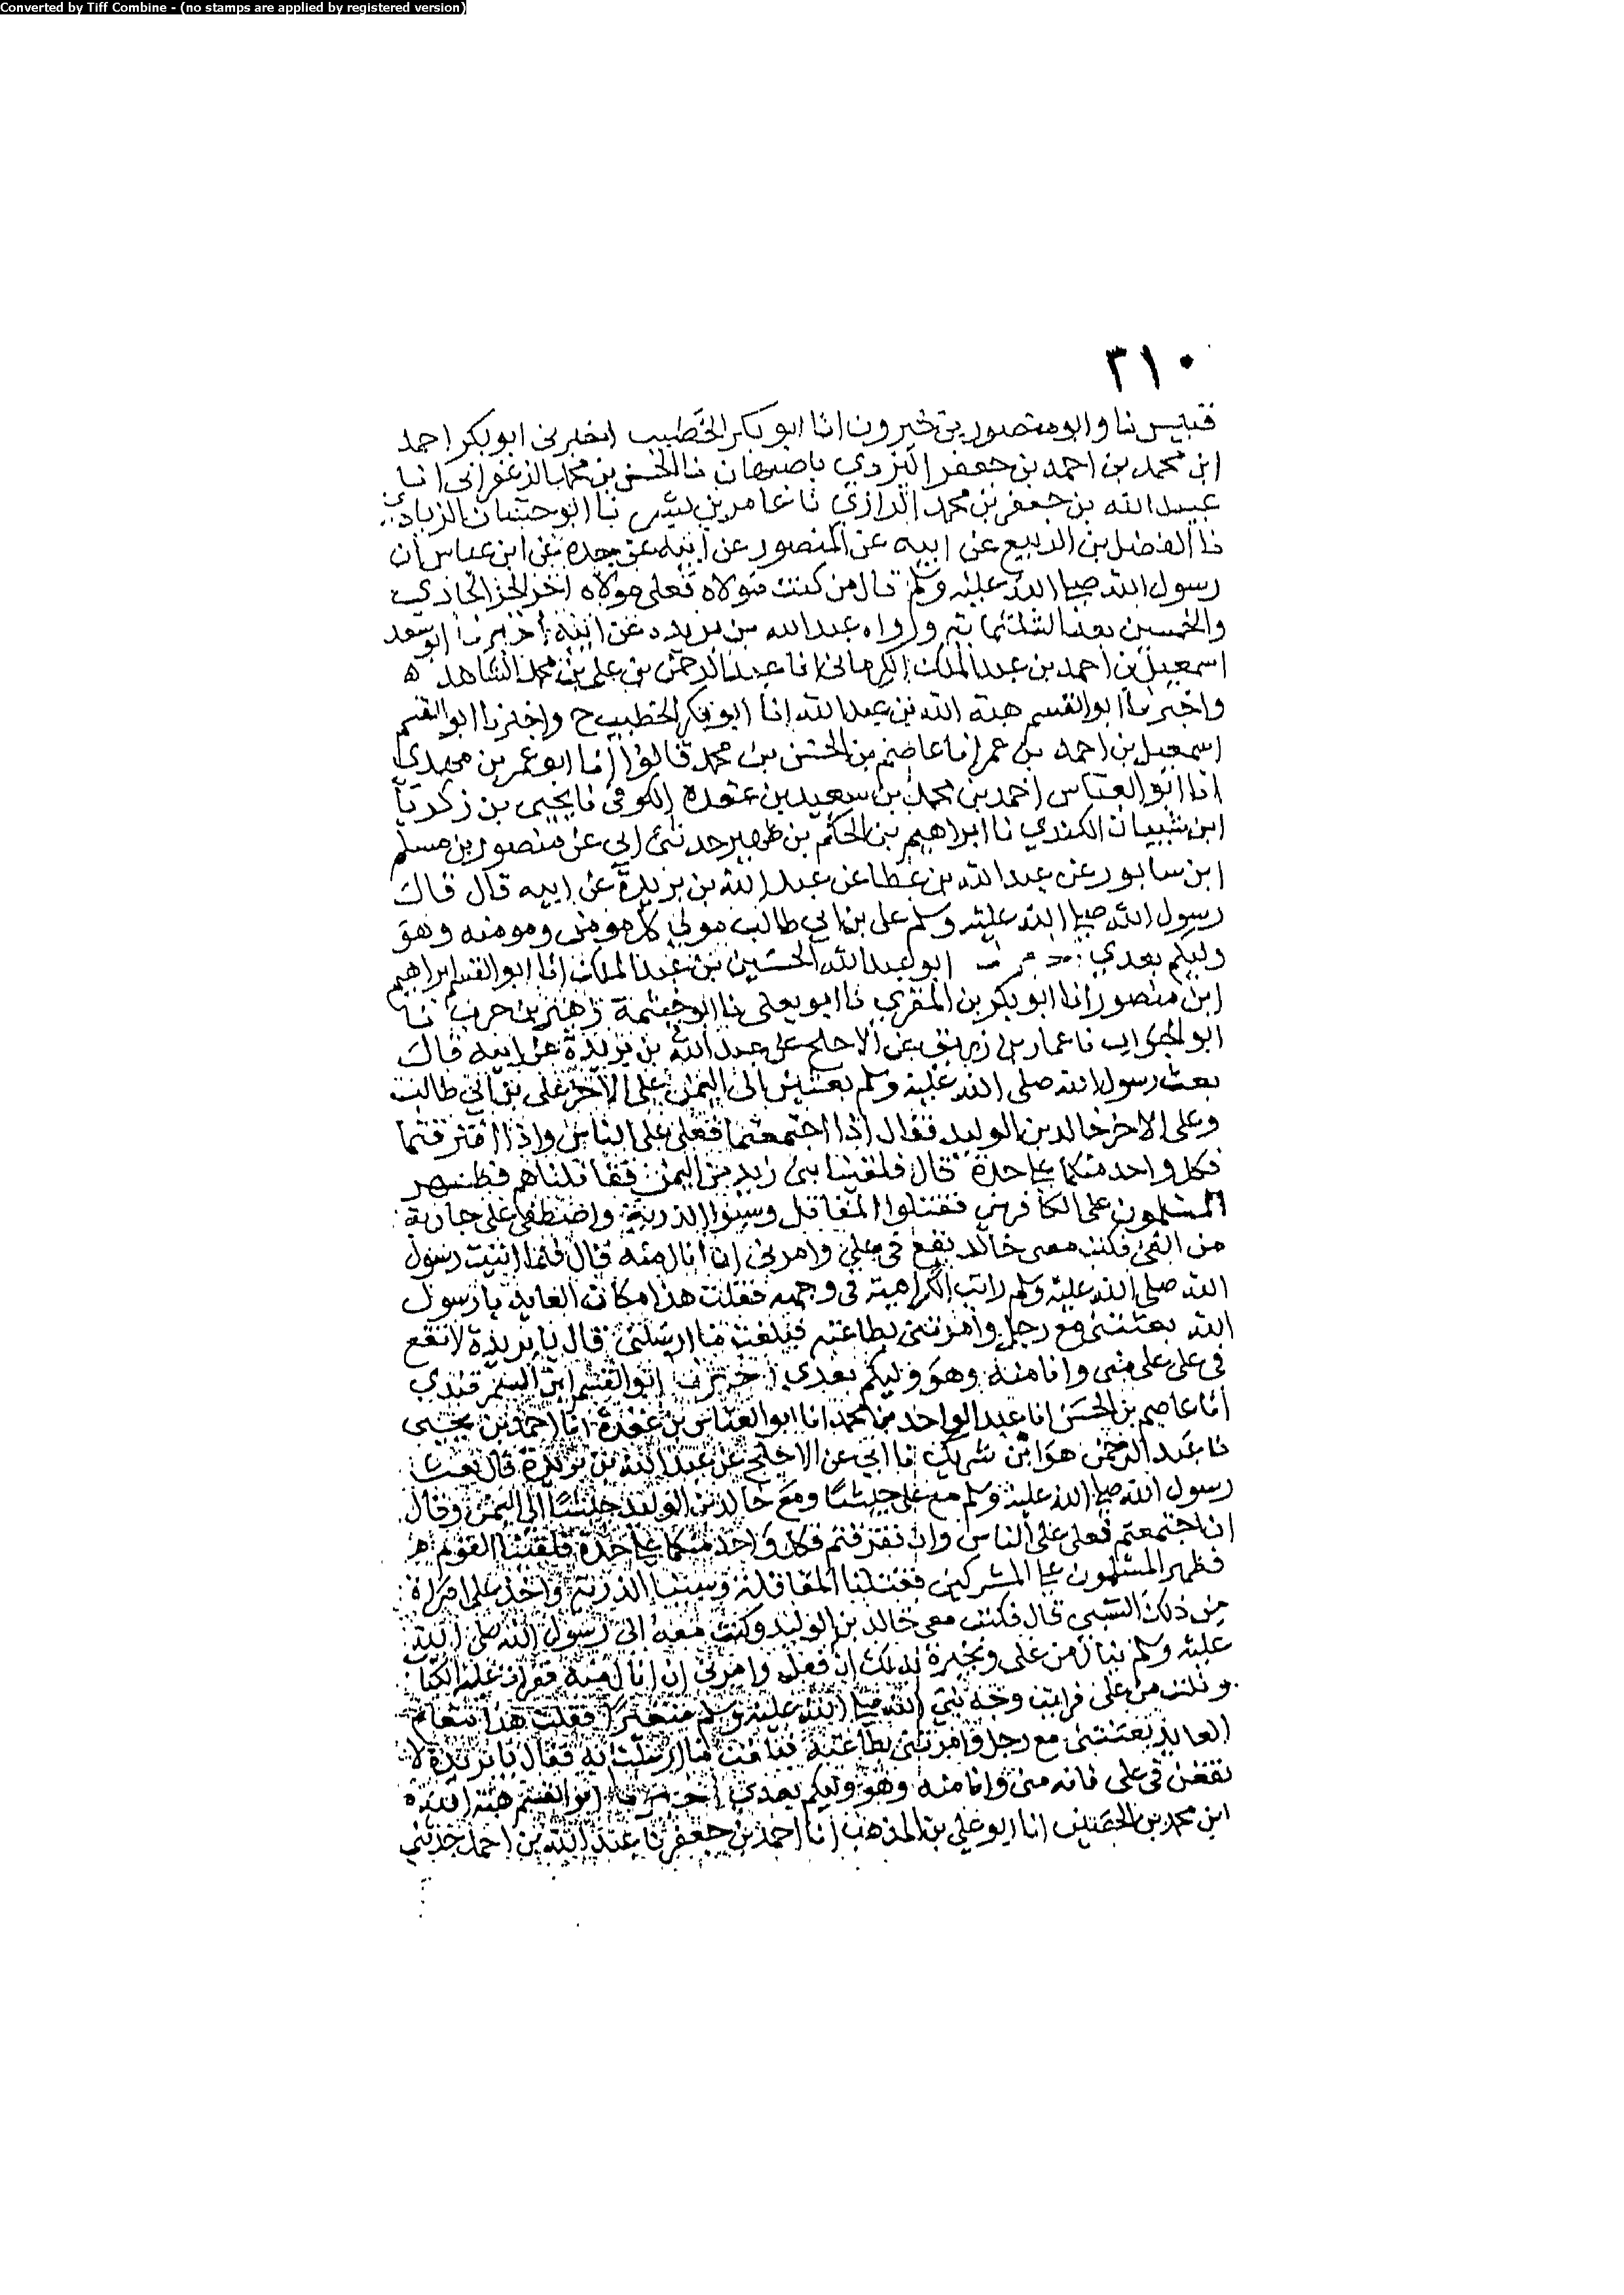 Converted by Tiff Combine - (no stamps are applied by registered version)
٣١٠
قبيس نا وابو منصور بن خيرون انا ابو بكر الخطيب اخبرني ابو بكر احمد
ابن محمد بن احمد بن جعفر اليزدي باصبهان نا الحسن بن محمد الزعفراني انا
عبيد الله بن جعفر بن محمد الرازي نا عامر بن بشر نا ابو حسان الزيادي
نا الفضل بن الربيع عن ابيه عن المنصور عن ابيه عن جده عن ابن عباس ان
رسول الله صلى الله عليه وسلم قال من كنت مولاه فعلي مولاه اخر الجز الحادي
والخمسين بعد الثلثمايه ورواه عبد الله بن بريده عن ابيه اخبرنا ابو سعد
اسمعيل بن احمد بن عبد الملك الكرماني انا عبد الرحمن بن علي بن محمد الشاهد ه
واخبرنا ابو القسم هبة الله بن عبد الله انا ابو بكر الخطيب ح واخبرنا ابو القسم
اسمعيل بن احمد بن عمر انا عاصم بن الحسن بن محمد قالوا انا ابو عمر بن مهدي
انا ابو العباس احمد بن محمد بن سعيد بن عقدة الكوفي نا يحيى بن زكريا
ابن شيبان الكندي نا ابراهيم بن الحكم بن ظهير حدثني ابي عن منصور بن مسلم
ابن سابور عن عبد الله بن عطا عن عبد الله بن بريدة عن ابيه قال قال
رسول الله صلى الله عليه وسلم علي بن ابي طالب مولى كل مومن ومومنه وهو
وليكم بعدي ابو عبد الله الحسين بن عبد الملك انا ابو القسم ابراهيم
ابن منصور انا ابو بكر بن المقري نا ابو يعلى نا ابو خيثمة زهير بن حرب نا
ابو الجواب نا عمار بن زريق عن الاجلح عن عبد الله بن بريدة عن ابيه قال
بعث رسول الله صلى الله عليه وسلم بعثين الى اليمن على الاخر علي بن ابي طالب
وعلى الاخر خالد بن الوليد فقال اذا اجتمعتما فعلي على الناس واذا افترقتما
فكل واحد منكما على حدة قال فلقينا بني زيد من اليمن فقاتلناهم فظهر
المسلمون على الكافرين فقتلوا المقاتل وسبوا الذرية واصطفى علي جارية
من الفي فكتب معي خالد يقع في علي وامرني ان انال منه قال فلما اتيت رسول
الله صلى الله عليه وسلم رايت الكراهية في وجهه فقلت هذا مكان العايذ يا رسول
الله بعثتني مع رجل وامرتني بطاعته فبلغت ما ارسلني قال يا بريدة لا تقع
في علي علي مني وانا منه وهو وليكم بعدي اخبرنا ابو القسم ابن السمرقندي
انا عاصم بن الحسن انا عبد الواحد بن محمد انا ابو العباس بن عقدة انا احمد بن يحيى
نا عبد الرحمن هو ابن شريك نا ابي عن الاجلح عن عبد الله بن بريدة قال بعث
رسول الله صلى الله عليه وسلم مع علي جيشا ومع خالد بن الوليد جيشا الى اليمن وقال
ان اجتمعتم فعلي على الناس وان تفرقتم فكل واحد منكما على حدة فلقينا القوم
فظهر المسلمون على المشركين فقتلنا المقاتلة وسبينا الذرية واخذ علي امراة
من ذلك السبي قال فكتب معي خالد بن الوليد وكنت معه الى رسول الله صلى الله
عليه وسلم ينال من علي ويخبره بذلك ان فعل وامرني ان انال منه فقرات عليه الكتاب
ونلت من علي فرايت وجه نبي الله صلى الله عليه وسلم متغيرا فقلت هذا مقام
العايذ بعثتني مع رجل وامرتني بطاعته فبلغت ما ارسلت به فقال يا بريدة لا
تقعن في علي فانه مني وانا منه وهو وليكم بعدي اخبرنا ابو القسم هبة الله
ابن محمد بن الحصين انا ابو علي بن المذهب انا احمد بن جعفر نا عبد الله بن احمد حدثني